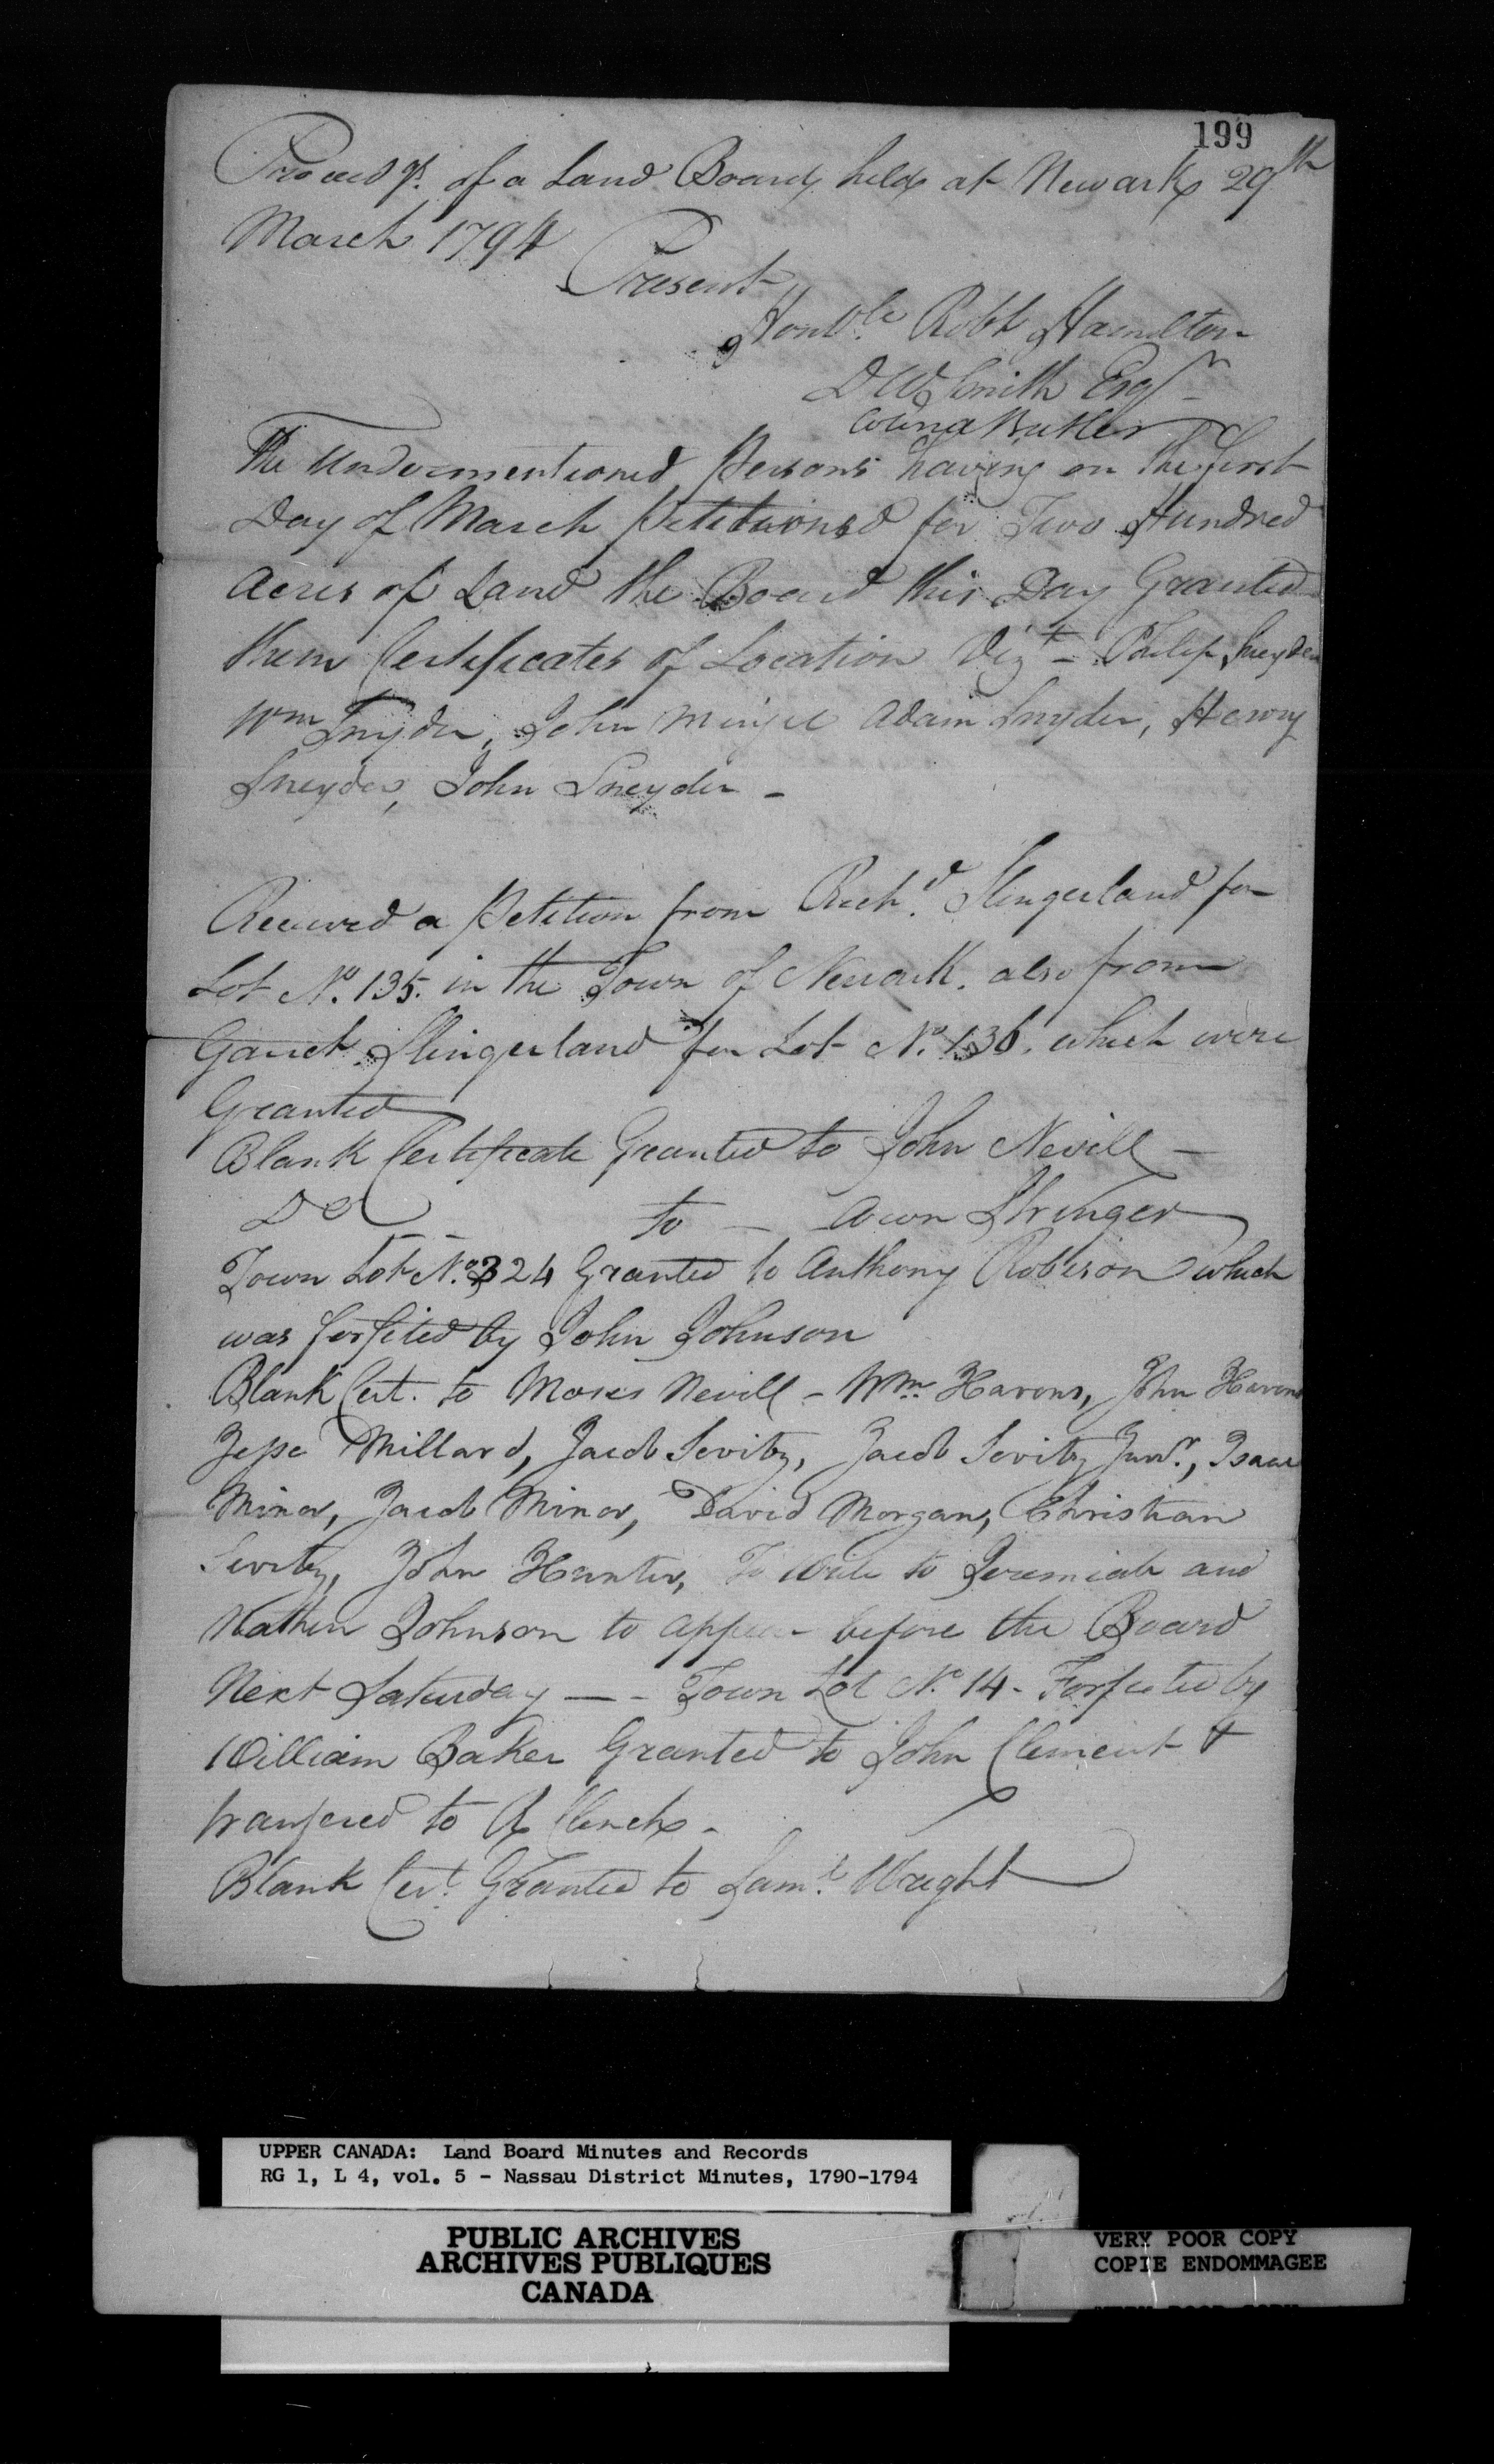 199
Proceedgs. of a Land Board held at Newark 29th
March 1794
Present
Honble. Robt Hamilton
D W Smith Esqr
Colonel Butler
The Undermentioned Persons having on the first
Day of March Petitioned for Two Hundred
Acres of Land the Board this Day Granted
them Certificates of Location Vizt - Philip Sneyder
Wm Snyder, John Adam Snyder, Henry
Sneyder, John Sneyder -
Received a Petition from Richd. Slingerland for
Lot No. 135. in the Town of Newark. also from
Garret Slingerland for Lot No. 136. which were
Granted
Blank Certificate Granted to John Nevill -
Do to - Stringer
Town Lot No. 324 Granted to Anthony Robison which
was forfited by John Johnson
Blank Cert. to Moses Nevill - Wm. Havens, John Havens
Jesse Millard, Jacob Sevitz, Jacob Sevitz Junr., Isaac
Minor, Jacob Minor, David Morgan, Christian
Sevitz, John Hunter, To write to Jeremiah and
Nathen Johnson to appear before the Board
Next Saturday - - Town Lot No. 14 - Forfeited by
William Baker Granted to John Clement &
transfered to R Clench -
Blank Cert. Granted to Saml. Wright
UPPER CANADA: Land Board Minutes and Records
RG 1, L 4, vol. 5 - Nassau District Minutes, 1790-1794
PUBLIC ARCHIVES
ARCHIVES PUBLIQUES
CANADA
VERY POOR COPY
COPIE ENDOMMAGEE